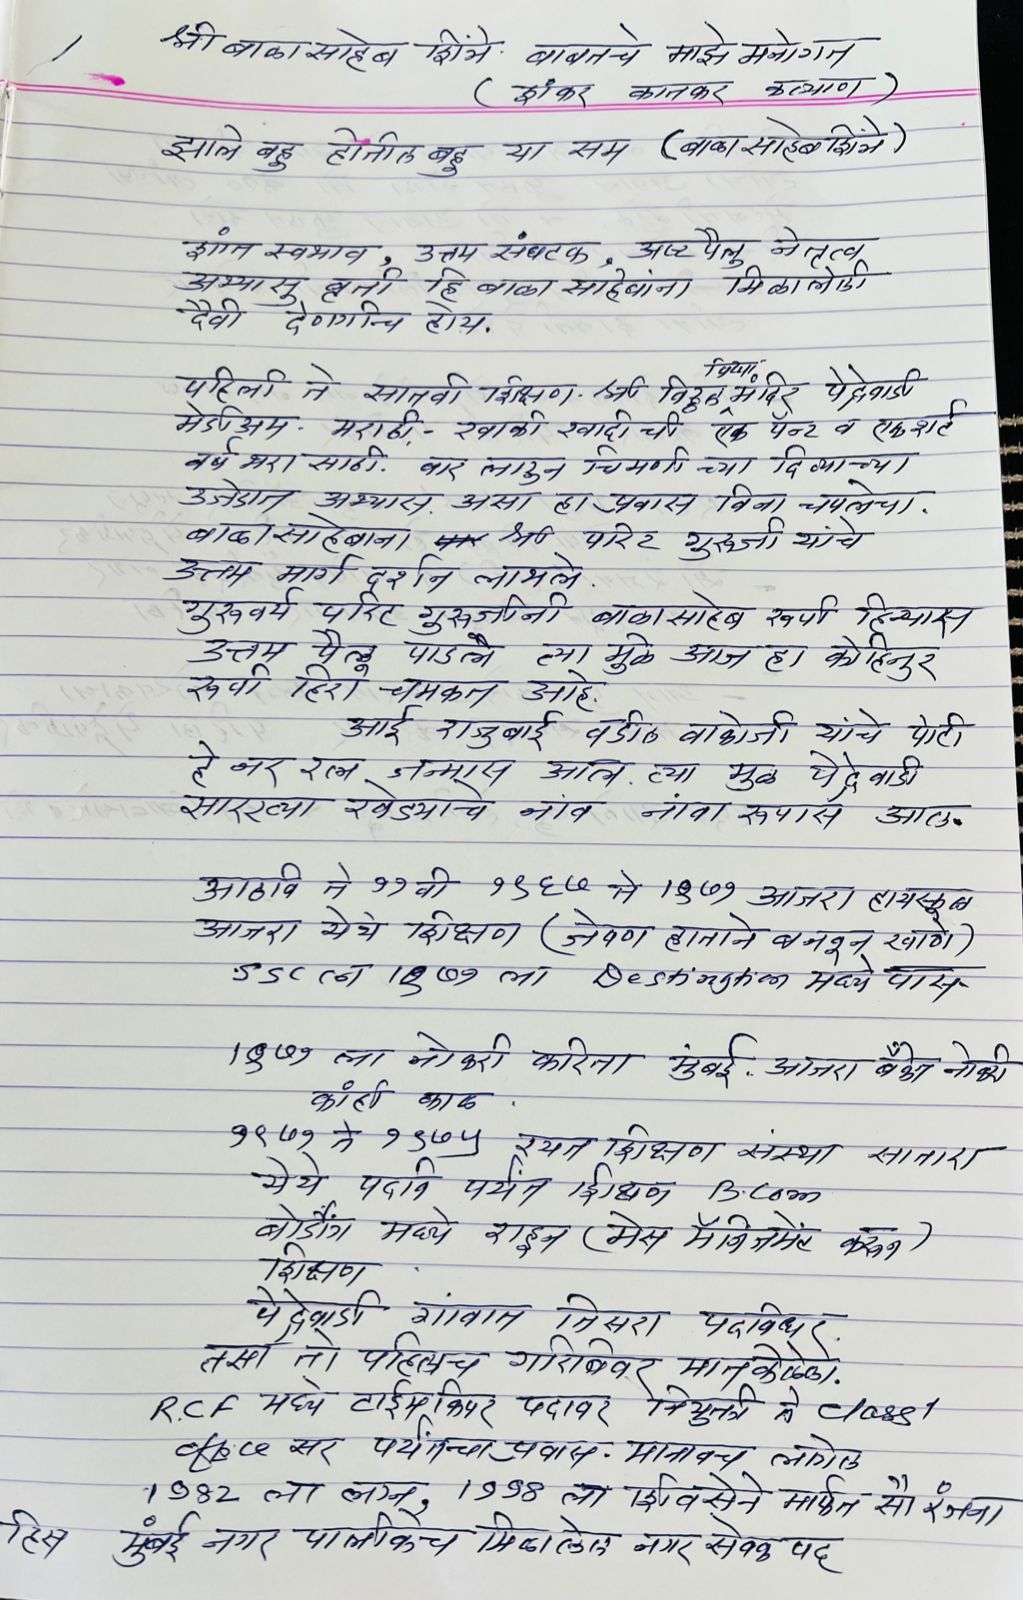 १
श्री बाळासाहेब शिंत्रे. बाबतचे माझे मनोगत
( शंकर कानकर कल्याण )
झाले बहु होतील बहु या सम (बाळासाहेब शिंत्रे)
शांत स्वभाव, उत्तम संघटक, अष्टपैलु नेतृत्व
अभ्यासु वृत्ती हि बाळासाहेबांना मिळालेली
दैवी देणगीच होय.
पहिली ते सातवी शिक्षण. श्री विठ्ठल विद्या मंदिर पेद्रेवाडी
मेडीअम. मराठी - खाकी खादीची एक पॅन्ट व एक शर्ट
वर्ष भरा साठी. वार लावुन चिमणी च्या दिव्याच्या
उजेडात अभ्यास. असा हा प्रवास विना चपलेचा.
बाळासाहेबाना श्री परिट गुरुजी यांचे
उत्तम मार्ग दर्शन लाभले.
गुरुवर्य परिट गुरुजींनी बाळासाहेब रूपी हिऱ्यास
उत्तम पैलू पाडले त्या मुळे आज हा कोहिनुर
रूपी हिरा चमकत आहे.
आई राजुबाई वडील वाकोजी यांचे पोटी
हे नर रत्न जन्मास आले. त्या मुळे पेद्रेवाडी
सारख्या खेड्याचे नांव नांवा रूपास आल.
आठवि ते ११वी १९६७ ते 1९७१ आजरा हायस्कूल
आजरा येथे शिक्षण (जेवण हाताने बनवून खाणे)
SSC ला 1९७१ ला Destingtion मध्ये पास
1९७१ ला नोकरी करिता मुंबई. आजरा बँकेत नोकरी
कांही काळ.
१९७१ ते १९७५ रयत शिक्षण संस्था सातारा
येथे पदवि पर्यंत शिक्षण B.Com
बोर्डींग मध्ये राहून (मेस मॅनेजमेंट करून)
शिक्षण
पेद्रेवाडी गांवात तिसरा पदविधर.
तसा तो पहिलाच गरिबिवर मात केलेला.
R.C.F मध्ये टाईम किपर पदावर नियुक्ती ते Class 1
ऑफिसर पर्यंतचा प्रवास. मानावच लागेल
1982 ला लग्न, 1998 ला शिवसेने मार्फत सौ रंजना
हिस मुंबई नगर पालीकेच मिळालेल नगर सेवक पद